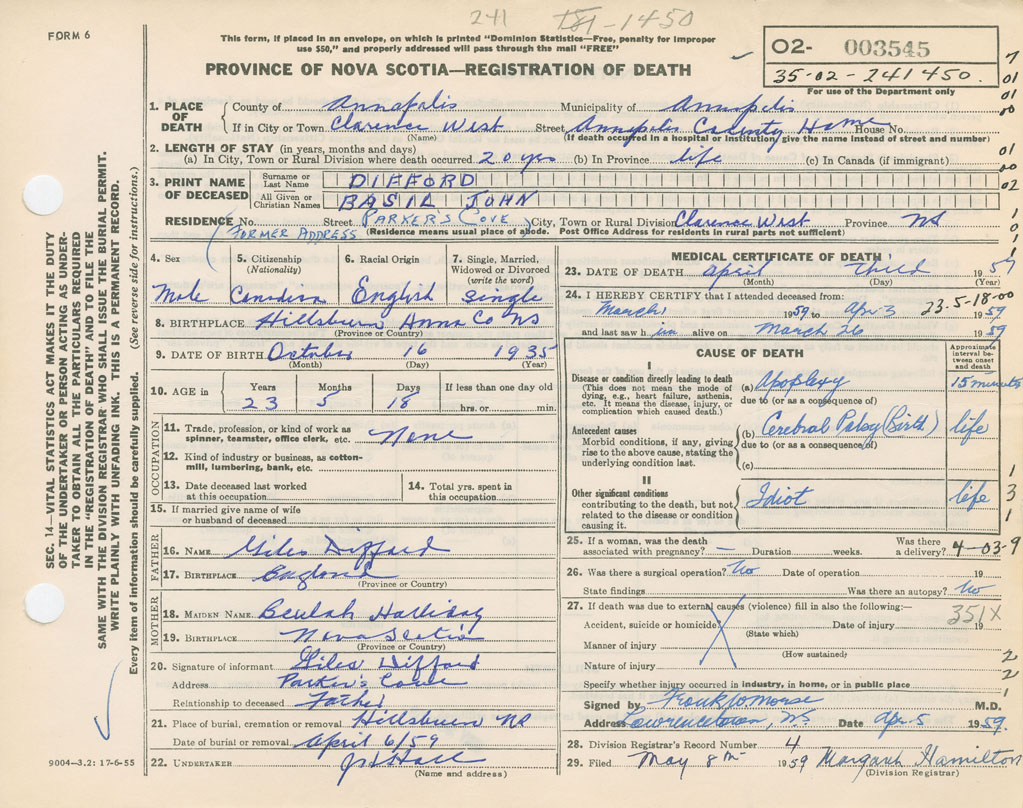 241 181-1450
FORM 6
This form, if placed in an envelope, on which is printed "Dominion Statistics—Free, penalty for improper
use $50," and properly addressed will pass through the mail "FREE"
PROVINCE OF NOVA SCOTIA—REGISTRATION OF DEATH
02- 003545
35-02-241450.
For use of the Department only
SEC. 14—VITAL STATISTICS ACT MAKES IT THE DUTY
OF THE UNDERTAKER OR PERSON ACTING AS UNDER-
TAKER TO OBTAIN ALL THE PARTICULARS REQUIRED
IN THE "REGISTRATION OF DEATH" AND TO FILE THE
SAME WITH THE DIVISION REGISTRAR WHO SHALL ISSUE THE BURIAL PERMIT.
WRITE PLAINLY WITH UNFADING INK. THIS IS A PERMANENT RECORD.
Every item of information should be carefully supplied. (See reverse side for instructions.)
1. PLACE OF DEATH County of Annapolis Municipality of Annapolis
If in City or Town Clarence West Street Annapolis County Home House No.
(Name) (If death occurred in a hospital or institution, give the name instead of street and number)
2. LENGTH OF STAY (in years, months and days)
(a) In City, Town or Rural Division where death occurred 20 yrs (b) In Province life (c) In Canada (if immigrant)
3. PRINT NAME OF DECEASED Surname or Last Name DIFFORD
All Given or Christian Names BASIL JOHN
RESIDENCE No. Street PARKER'S COVE City, Town or Rural Division Clarence West Province NS
FORMER ADDRESS (Residence means usual place of abode. Post Office Address for residents in rural parts not sufficient)
4. Sex Male
5. Citizenship (Nationality) Canadian
6. Racial Origin English
7. Single, Married, Widowed or Divorced (write the word) single
8. BIRTHPLACE Hillsburn Anna Co NS
(Province or Country)
9. DATE OF BIRTH October 16 1935
(Month) (Day) (Year)
10. AGE in Years Months Days If less than one day old
23 5 18 hrs. or min.
OCCUPATION
11. Trade, profession, or kind of work as
spinner, teamster, office clerk, etc. None
12. Kind of industry or business, as cotton-
mill, lumbering, bank, etc.
13. Date deceased last worked
at this occupation
14. Total yrs. spent in
this occupation
15. If married give name of wife
or husband of deceased
FATHER
16. NAME Giles Difford
17. BIRTHPLACE England
(Province or Country)
MOTHER
18. MAIDEN NAME Beulah Halliday
19. BIRTHPLACE Nova Scotia
(Province or Country)
20. Signature of informant Giles Difford
Address Parker's Cove
Relationship to deceased Father
21. Place of burial, cremation or removal Hillsburn NS
Date of burial or removal April 6/59
22. UNDERTAKER
(Name and address)
9004—3.2: 17-6-55
MEDICAL CERTIFICATE OF DEATH
23. DATE OF DEATH April third 1959
(Month) (Day) (Year)
24. I HEREBY CERTIFY that I attended deceased from: 23-5-18-00
March 1959 to Apr 3 1959
and last saw him alive on March 26 1959
CAUSE OF DEATH
Approximate interval between onset and death
I
Disease or condition directly leading to death
(This does not mean the mode of
dying, e.g., heart failure, asthenia,
etc. It means the disease, injury, or
complication which caused death.)
(a) Apoplexy 15 minutes
due to (or as a consequence of)
Antecedent causes
Morbid conditions, if any, giving
rise to the above cause, stating the
underlying condition last.
(b) Cerebral Palsy (Birth) life
due to (or as a consequence of)
(c)
II
Other significant conditions
contributing to the death, but not
related to the disease or condition
causing it.
Idiot life
25. If a woman, was the death
associated with pregnancy? — Duration weeks. Was there a delivery? 4-03-9
26. Was there a surgical operation? No Date of operation 19
State findings Was there an autopsy? No
27. If death was due to external causes (violence) fill in also the following:— 351X
Accident, suicide or homicide? Date of injury 19
(State which)
Manner of injury
(How sustained)
Nature of injury
Specify whether injury occurred in industry, in home, or in public place
Signed by Frank W Morse M.D.
Address Lawrencetown, NS Date Apr 5 1959.
28. Division Registrar's Record Number 4
29. Filed May 8th 1959 Margaret Hamilton
(Division Registrar)
7
01
01
00
01
00
02
1
0
1
1
3
1
2
2
1